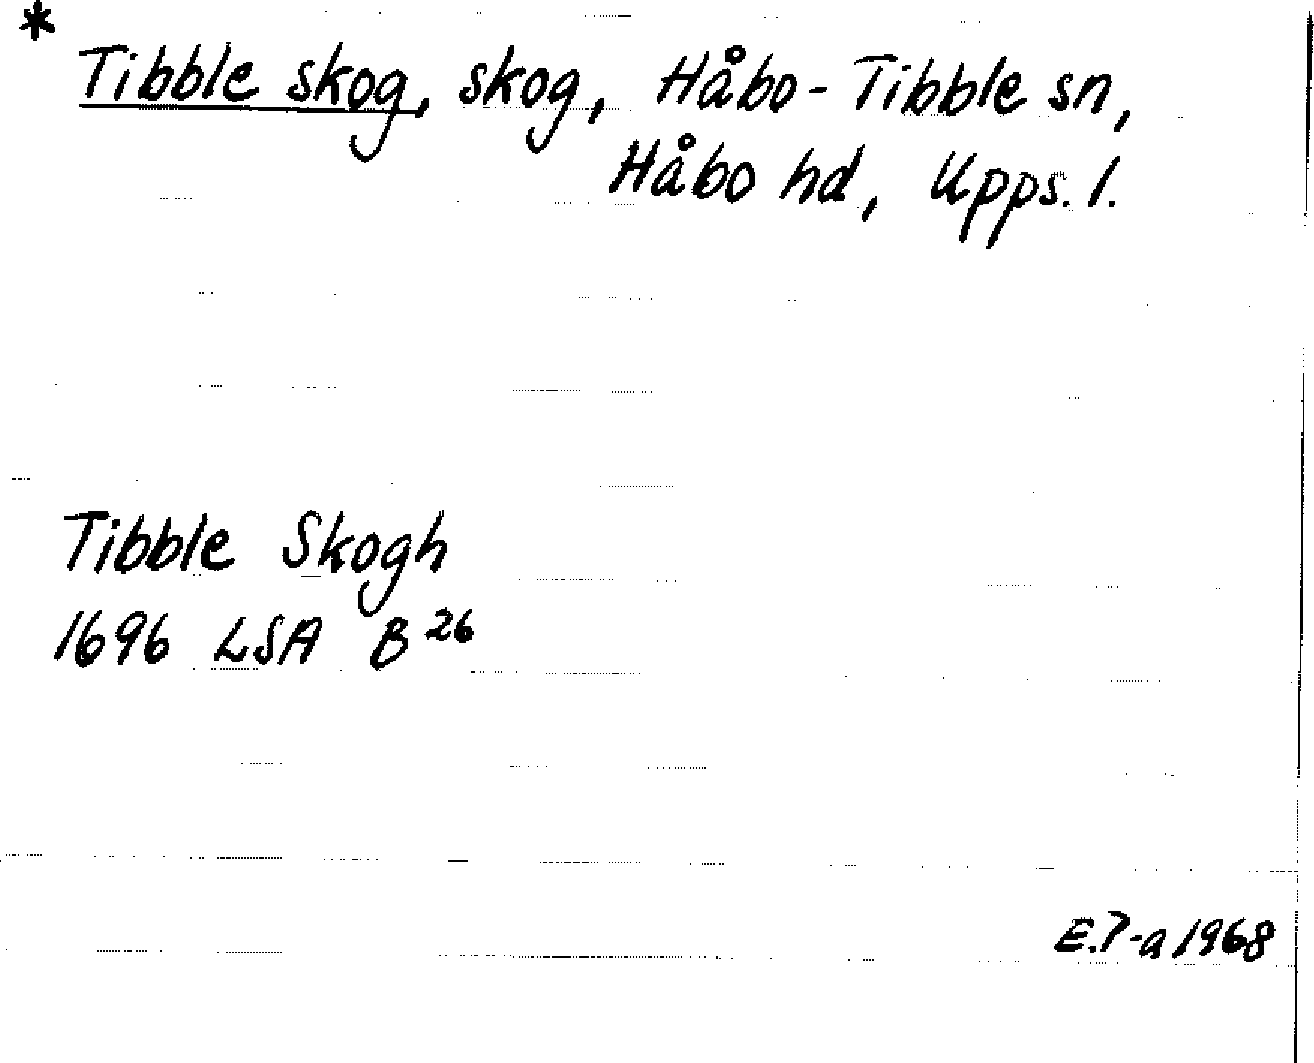 *
Tibble skog, skog, Håbo-Tibble sn,
Håbo hd, Upps. l.
Tibble Skogh
1696 LSA B 26
E.P-a 1968